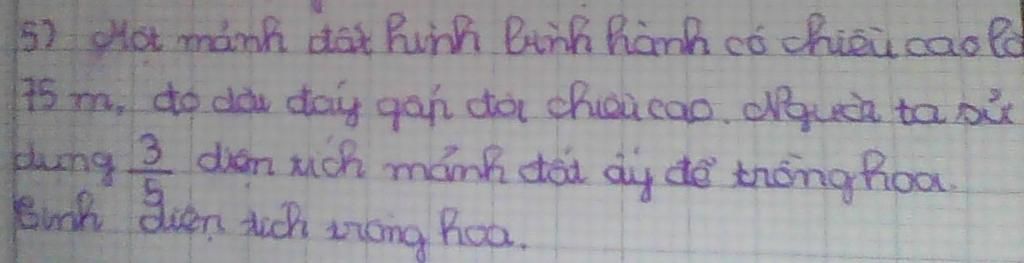 5) Một mảnh đất hình bình hành có chiều cao là
75 m, độ dài đáy gấp đôi chiều cao. Người ta sử
dụng 3/5 diện tích mảnh đất ấy để trồng hoa.
Tính diện tích trồng hoa.